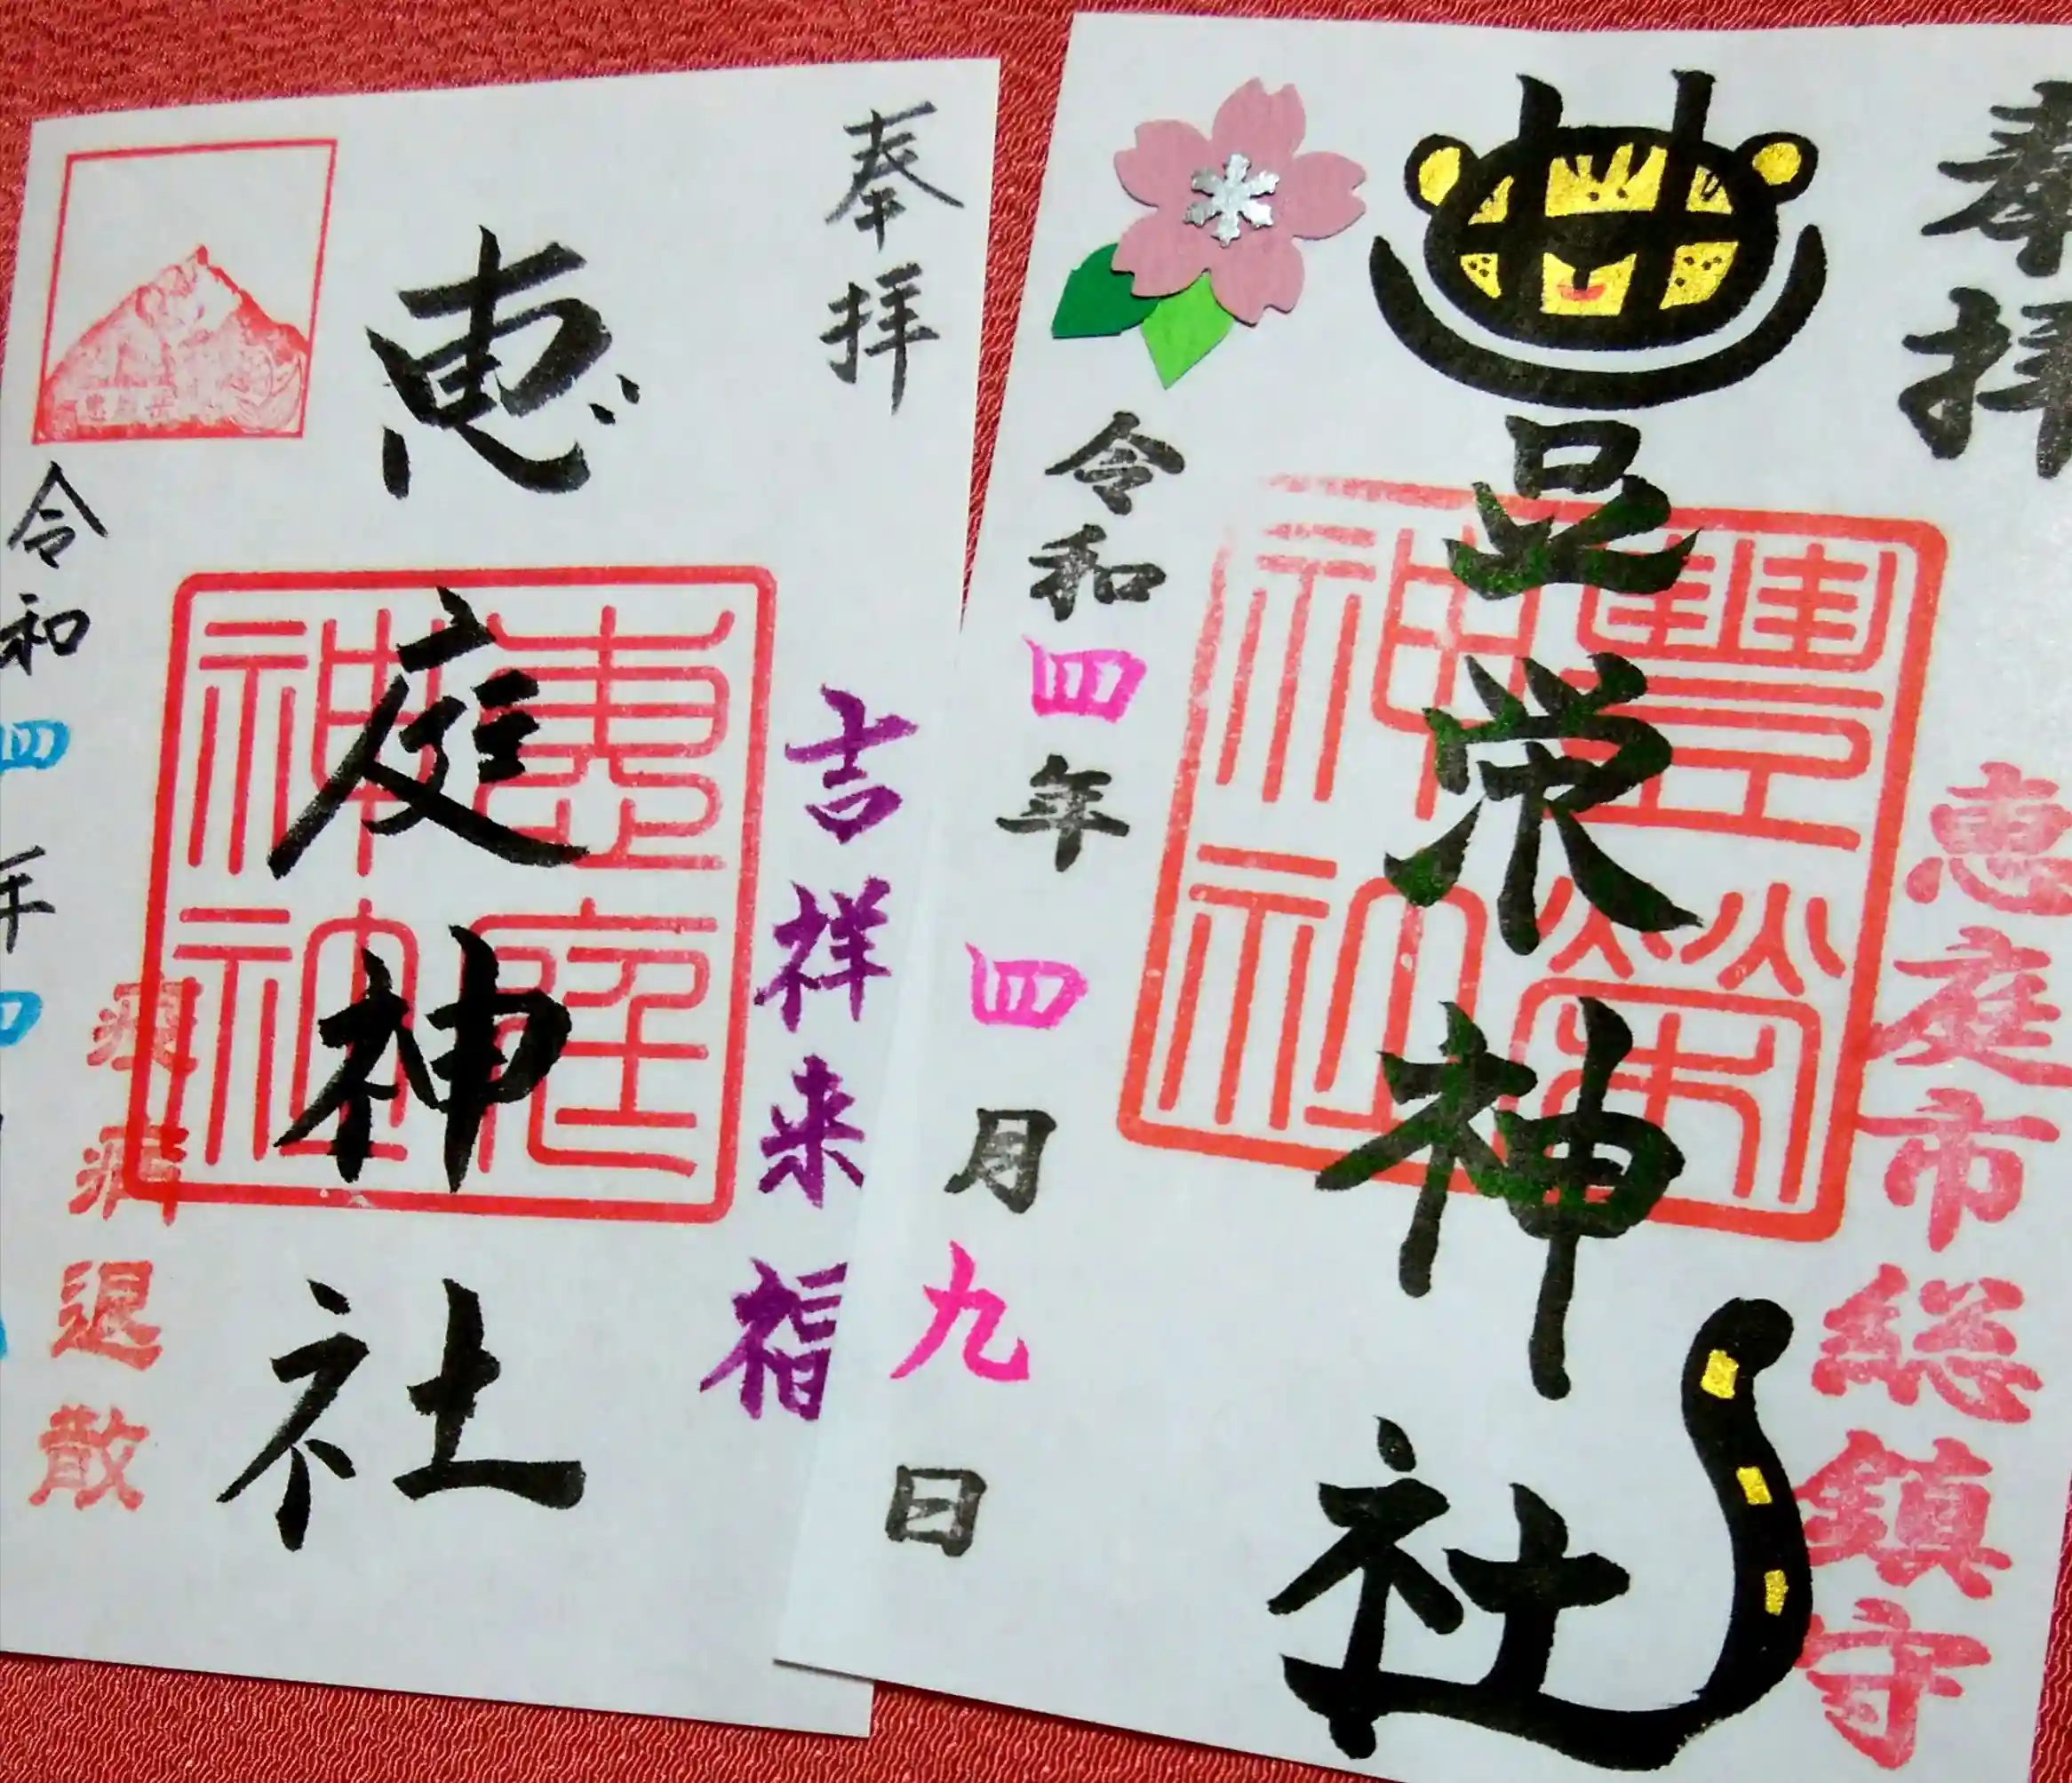 奉拝
恵庭市総鎮守
豊栄神社
豐榮神社
令和四年四月九日
奉拝
吉祥来福
恵庭神社
惠庭神社
疫病退散
令和四年四